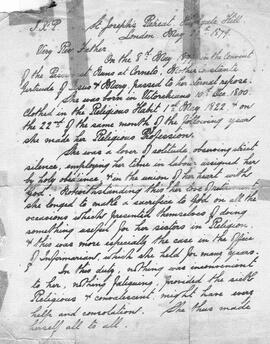 St Joseph's Retreat, Highgate Hill,
London May 1879.
Very Rev Father
On the 8th May in the convent
of the Passionist Nuns at Corneto, Mother Constante
Gertrude of Jesus & Mary, passed to her eternal repose.
She was born in 10th Dec. 1800.
Clothed in the Religious Habit 1st May 1822, & on
the 22nd of the same month of the following
she made her Religious Profession.
She was a lover of solitude, observing strict
silence, employing her time in labour assigned her
by holy obedience, & in the union of her heart with
God. Notwithstanding this her love of retirement
she longed to make a sacrifice to God on all the
occasions which presented themselves of doing
something useful for her sisters in Religion,
& this was more especially the case in the Office
of Infirmarian, which she held for many years.
In this duty nothing was inconvenient
to her, nothing fatiguing, provided the sick
Religious & convalescent, might have every
help and consolation. She thus made
herself all to all.